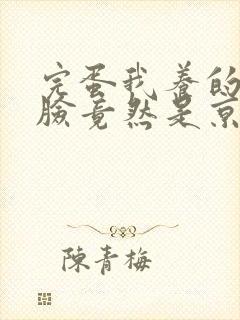 完蛋我养的
脸竟然是京
陳青梅